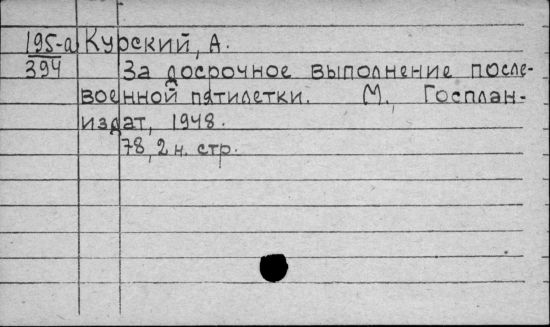 195-а Курский, А.
394 За досрочное выполнение после-
военной пятилетки. М., Госплан-
издат, 1948.
78, 2 н. стр.